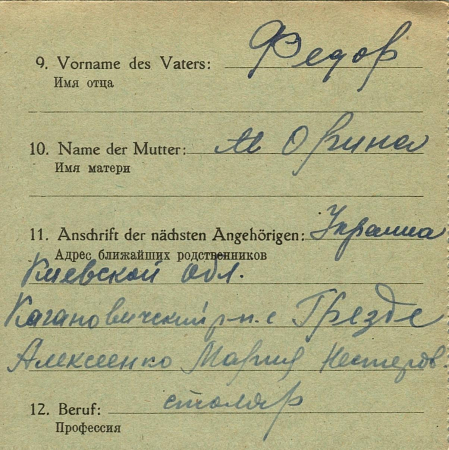 9. Vorname des Vaters: Федор
Имя отца
10. Name der Mutter: М Орина
Имя матери
11. Anschrift der nächsten Angehörigen: Украина
Адрес ближайших родственников
Киевской обл.
Кагановичский р-н. с Грезде
Алексеенко Мария Нестеров.
12. Beruf: столяр
Профессия